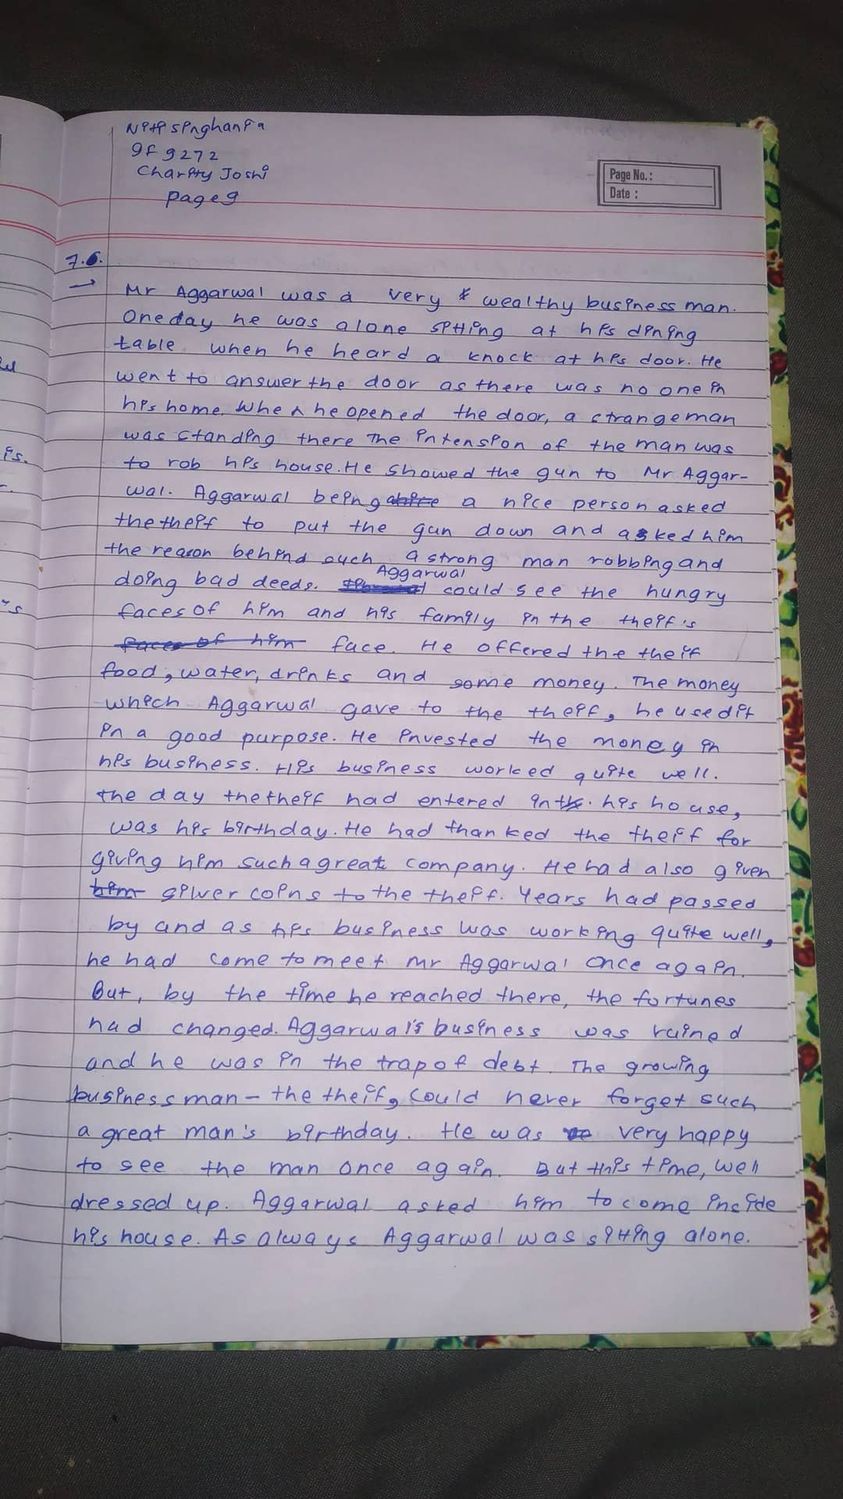 Niti singhania
9F 9272
Charity Joshi
Page 9
Page No. :
Date :
7.6.
→ Mr Aggarwal was a very wealthy business man.
One day he was alone sitting at his dining
table when he heard a knock at his door. He
went to answer the door as there was no one in
his home. When he opened the door, a strange man
was standing there The intension of the man was
to rob his house. He showed the gun to Mr Aggar-
wal. Aggarwal being a nice person asked
the theif to put the gun down and asked him
the reason behind such a strong man robbing and
doing bad deeds. Aggarwal could see the hungry
faces of him and his family in the theif's
faces of him face. He offered the theif
food, water, drinks and some money. The money
which Aggarwal gave to the theif, he used it
in a good purpose. He invested the money in
his business. His business worked quite well.
the day the theif had entered in his house,
was his birthday. He had thanked the theif for
giving him such a great company. He had also given
him silver coins to the theif. Years had passed
by and as his business was working quite well,
he had come to meet Mr Aggarwal once again.
But, by the time he reached there, the fortunes
had changed. Aggarwal's business was ruined
and he was in the trap of debt. The growing
business man - the theif, could never forget such
a great man's birthday. He was very happy
to see the man once again. But this time, well
dressed up. Aggarwal asked him to come inside
his house. As always Aggarwal was sitting alone.